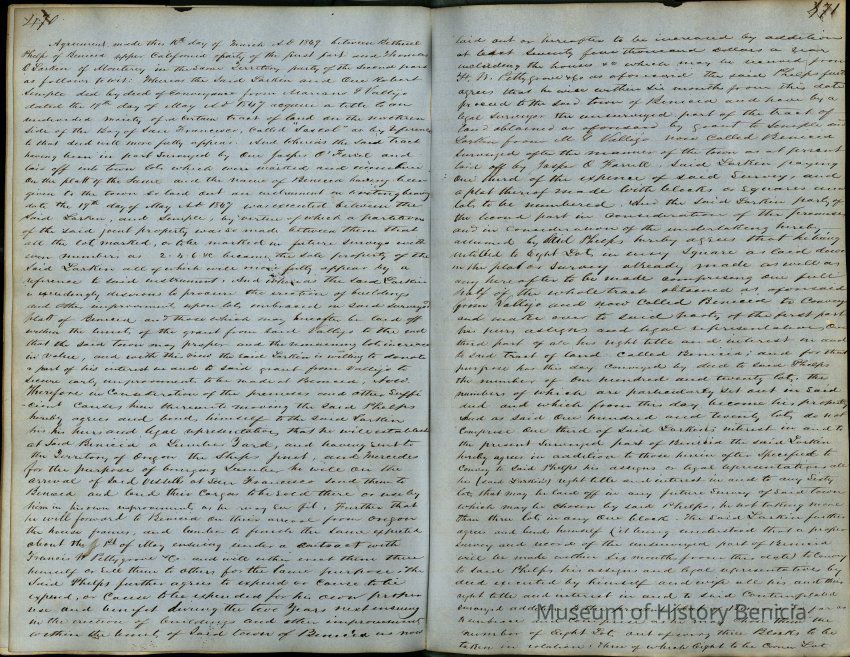 470
Agreement made this 16th day of March A.D. 1849 between Bethuel
Phelps of Benicia upper California party of the first part and Thomas
O Larkin of Monterey in the same Territory party of the second part
as follows towit. Whereas the Said Larkin and One Robert
Semple did by deed of Conveyance from Mariano G Vallejo
dated the 19th day of May A.D. 1847 acquire a title to an
undivided moiety of a certain tract of land on the northern
Side of the Bay of San Francisco, Called Sascol as by reference
to that deed will more fully appear. And whereas the Said tract
having been in part Surveyed by One Jasper O'Farrel and
laid off into town lots which were marked and numbered
On the platt of the Same and the name of Benicia having been
given to the town So laid out an instrument in writing bearing
date the 19th day of May A.D. 1847 was executed between the
Said Larkin, and Semple, by virtue of which a partition
of the said joint property was so made between them that
all the lots marked, or to be marked in future Surveys with
even numbers as 2. 4. 6 &c became the Sole property of the
Said Larkin all of which will more fully appear by a
reference to said instrument. And whereas the said Larkin
is exceedingly desirous to procure the erection of buildings
and other improvements upon lots embraced in Said Surveyed
platt of Benicia, and those which may hereafter be laid off
within the limits of the grant from said Vallejo to the end
that the said town may prosper and the remaining lots increase
in value, and with this view the said Larkin is willing to donate
a part of his interest in and to said grant from Vallejo to
Secure early improvements to be made at Benicia, Now
Therefore in Consideration of the premises and other Suffi-
cient Causes him thereunto moving the Said Phelps
hereby agrees and binds himself to the Said Larkin
his heirs and legal representatives that he will establish
at Said Benicia a Lumber Yard, and having sent to
the Territory of Oregon the Ships and Mercedes
for the purpose of bringing Lumber he will on the
arrival of Said Vessels at San Francisco Send them to
Benicia and land their Cargos to be Sold there or use by
him in his own improvements, as he may See fit, Further that
he will forward to Benicia on their arrival from Oregon
the house frames, and lumber to finish the same expected
about the 1st of May ensuing under a Contract with
Francis W Pettygrove &c and will either erect them there
himself or sell them to others for the Same purpose. The
Said Phelps further agrees to expend or Cause to be
expend, or Cause to be expended for his own proper
use and benefit during the two Years next ensuing
in the erection of buildings and other improvements
within the limits of Said town of Benicia as now
471
laid out or hereafter to be increased by addition
at least Seventy four thousand dollars a Year
including the houses &c which may be received from
F. W. Pettygrove &c as aforesaid the said Phelps further
agrees that he will within six months from this date
proceed to the Said town of Benicia and have by a
legal Surveyor the unsurveyed part of the tract of
land obtained as aforesaid by grant to Semple and
Larkin from M. G Vallejo now Called Benicia
Surveyed after the manner of the town as at present
laid off by Jasper O Farrell. Said Larkin paying
One third of the expense of said Survey and
a plat thereof made with blocks or squares and
lots to be numbered. And the said Larkin party of
the Second part in Consideration of the premises
and in Consideration of the undertaking hereby
assumed by Said Phelps hereby agrees that he being
entitled to Eight Lots in every Square as laid down
in the plat or Survey already made as well as
any hereafter to be made comprising One full
half of the whole tract obtained as aforesaid
from Vallejo and now Called Benicia to Convey
and make over to said party of the first part
his heirs assigns and legal representatives One
third part of all his right title and interest in and
to said tract of land Called Benicia; and for that
purpose has this day Conveyed by deed to said Phelps
the number of One hundred and twenty lots, the
numbers of which are particularly set out in Said
deed and which from this day become his property
And as said One hundred and twenty lots do not
Compose One third of Said Larkin's interest in and to
the present Surveyed part of Benicia the said Larkin
hereby agrees in addition to those herein after Specified to
Convey to Said Phelps his assigns or legal representatives all
his (said Larkin's) right title and interest in and to any Sixty
lots that may be laid off in any future Survey of Said town
which may be chosen by said Phelps, he not taking more
than three lots in any One block. The Said Larkin further
agrees and binds himself (it being understood that a proper
Survey and record of the unsurveyed part of Benicia
will be made within Six months from this date) to Convey
to said Phelps his assigns and legal representatives by
deed executed by himself and wife all his and their
right title and interest in and to said Contemplated
Surveyed addition
number of Eight Lots, out of every three Blocks to be
taken in rotation; three of which Eight to be Corner Lots
Museum of History Benicia